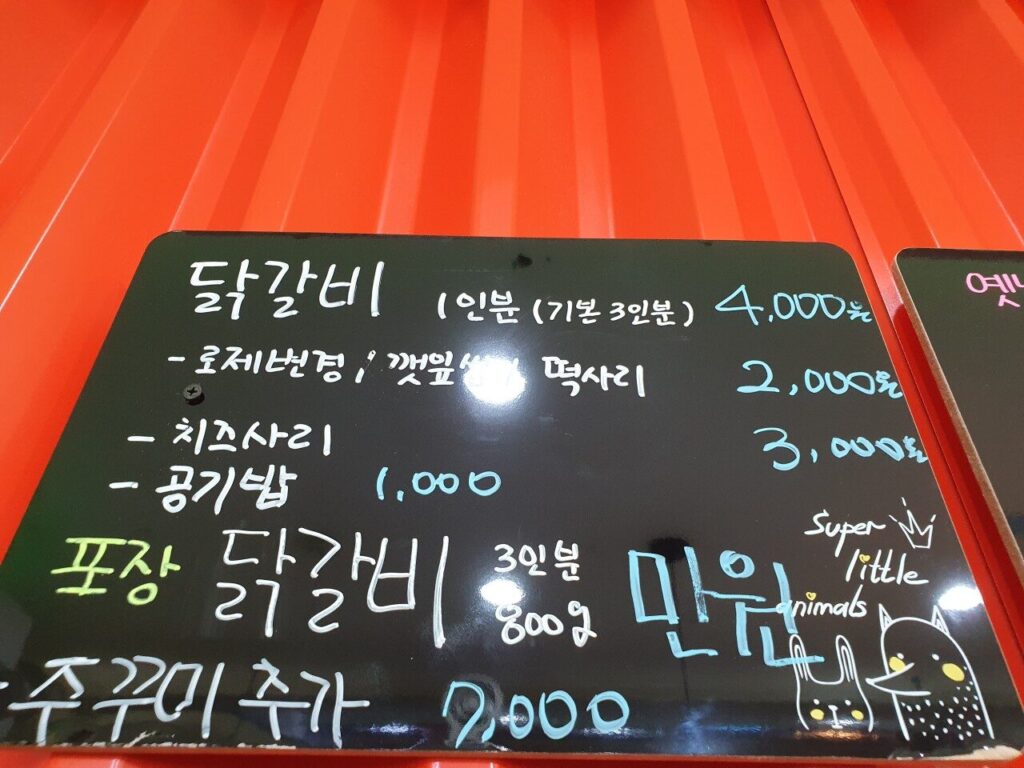 닭갈비 1인분 (기본 3인분) 4,000원
- 로제변경 / 깻잎 떡사리 2,000원
- 치즈사리 3,000원
- 공기밥 1,000
포장 닭갈비 3인분 800g 만원
- 주꾸미 추가 7,000
Super
little
animals